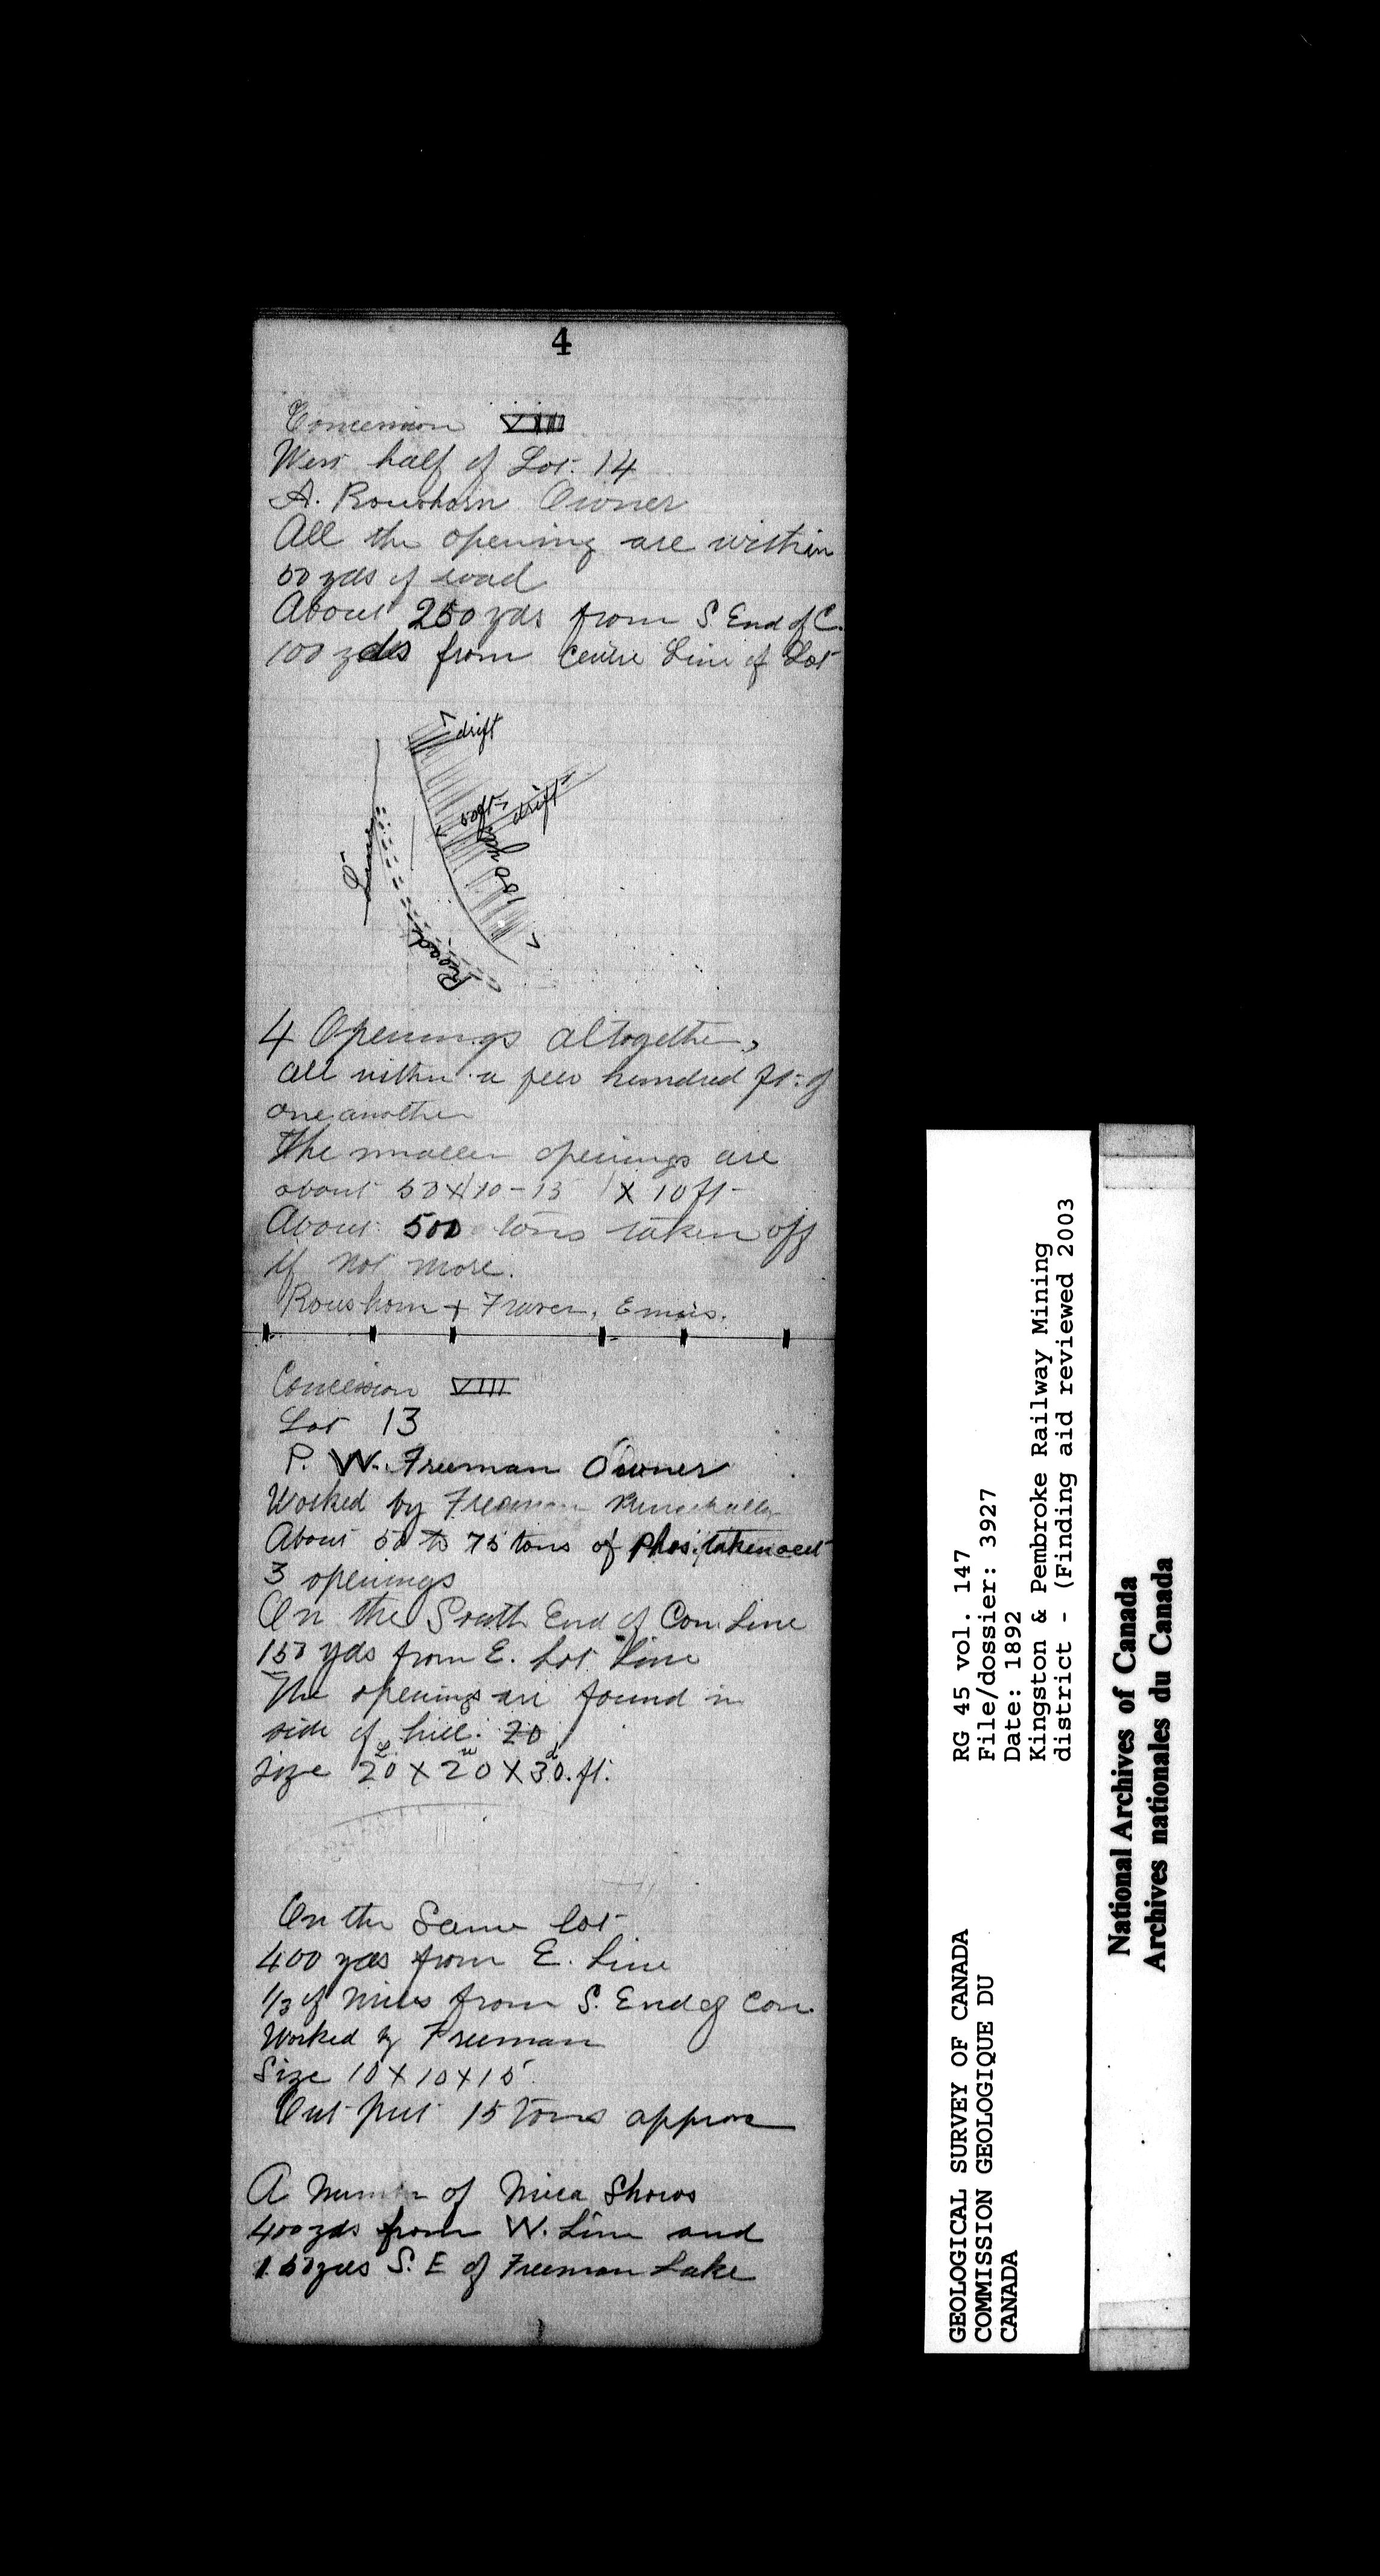 4
Concession VIII
West half of Lot. 14
A. Roushorn Owner
All the opening are within
50 yds of road
About 250 yds from S End of C.
100 yds from Centre Line of Lot
drift
50 ft
drift
150 yds
Line
Road
4 Openings altogether,
all within a few hundred ft. of
one another
The smaller openings are
about 50 X 10 - 15 X 10 ft
About 500 tons taken off
if not more.
Roushorn + Fraser.
Concession VIII
Lot 13
P. W. Freeman Owner
Worked by Freeman
About 50 to 75 tons of phos. taken out
3 openings
On the South End of Con Line
150 yds from E. Lot Line
The openings are found in
side of hill. 20
L w d
Size 20 X 20 X 30. ft.
On the Same lot
400 yds from E. Line
1/3 of miles from S. End of Con.
Worked by Freeman
Size 10 X 10 X 15
Out put 15 tons approx
A Number of Mica Shows
400 yds from W. Line and
150 yds S. E of Freeman Lake
GEOLOGICAL SURVEY OF CANADA
COMMISSION GEOLOGIQUE DU
CANADA
RG 45 vol. 147
File/dossier: 3927
Date: 1892
Kingston & Pembroke Railway Mining
district - (Finding aid reviewed 2003
National Archives of Canada
Archives nationales du Canada